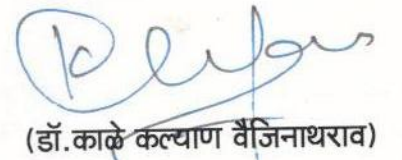 (डॉ.काळे कल्याण वैजिनाथराव)